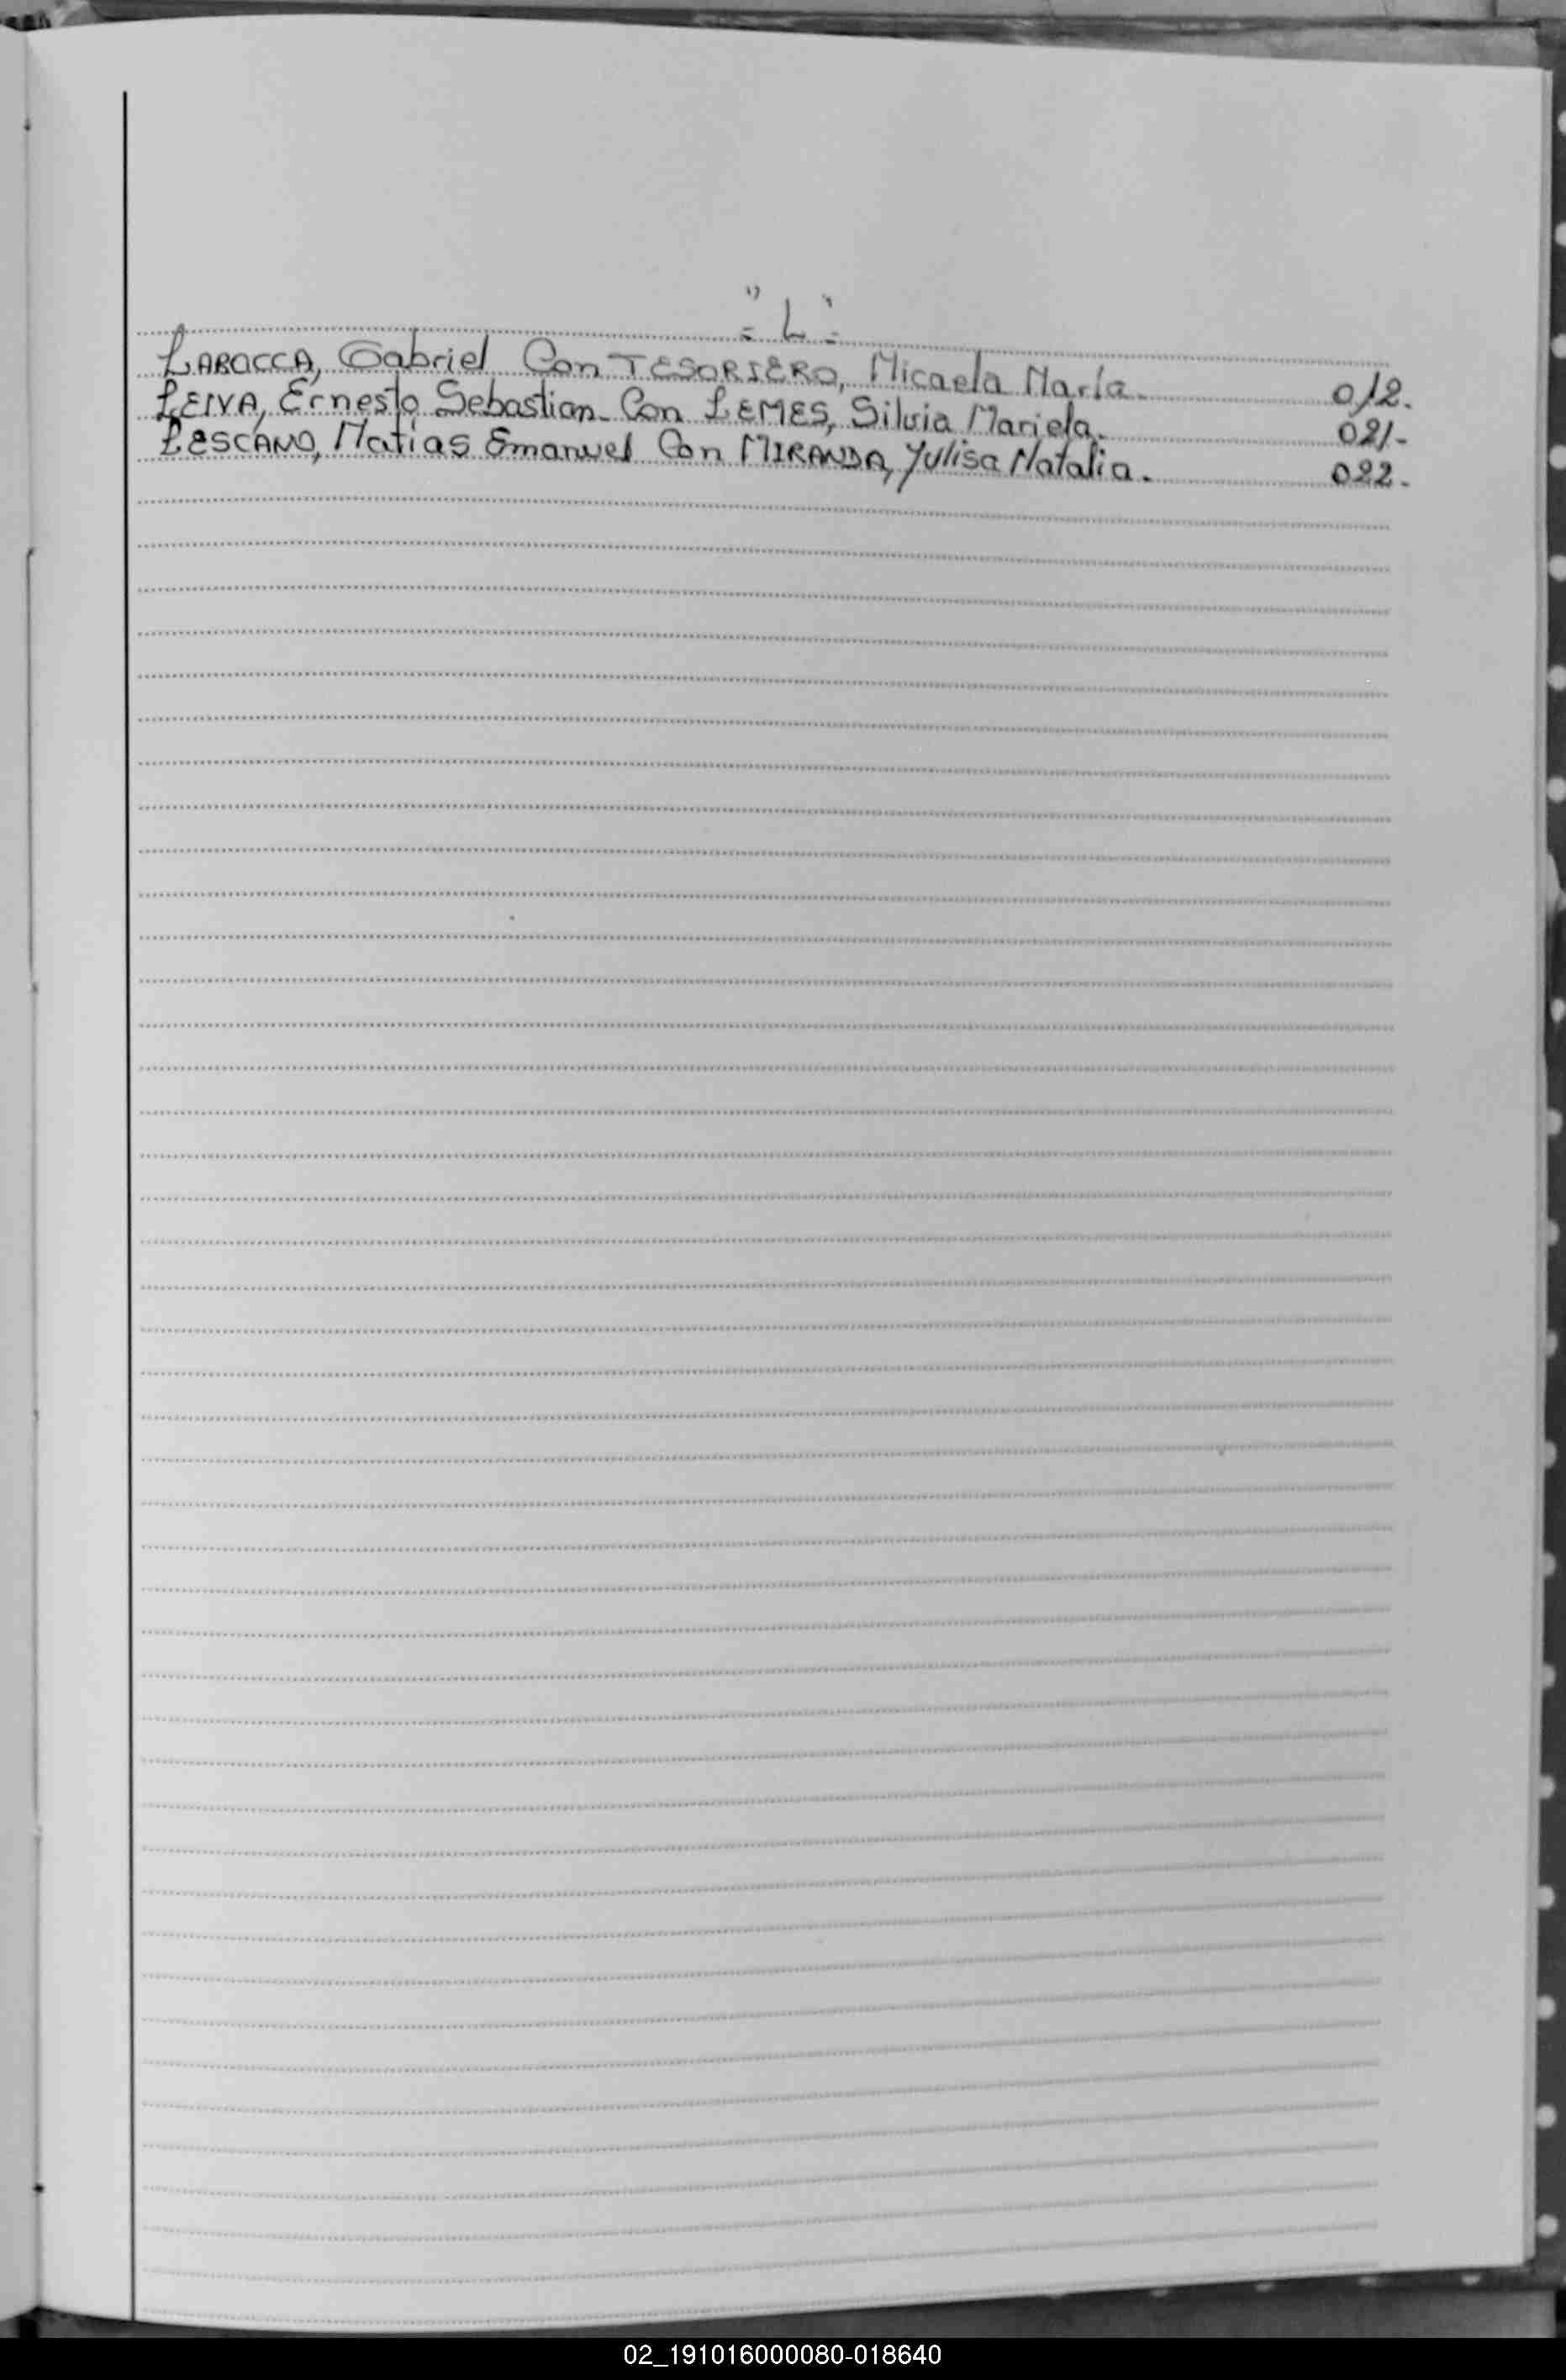 " L "
LAROCCA, Gabriel Con TESORIERO, Micaela María. 012.
LEIVA, Ernesto Sebastian Con LEMES, Silvia Mariela. 021-
LESCANO, Matias Emanuel Con MIRANDA, Yulisa Natalia. 022.
02_191016000080-018640